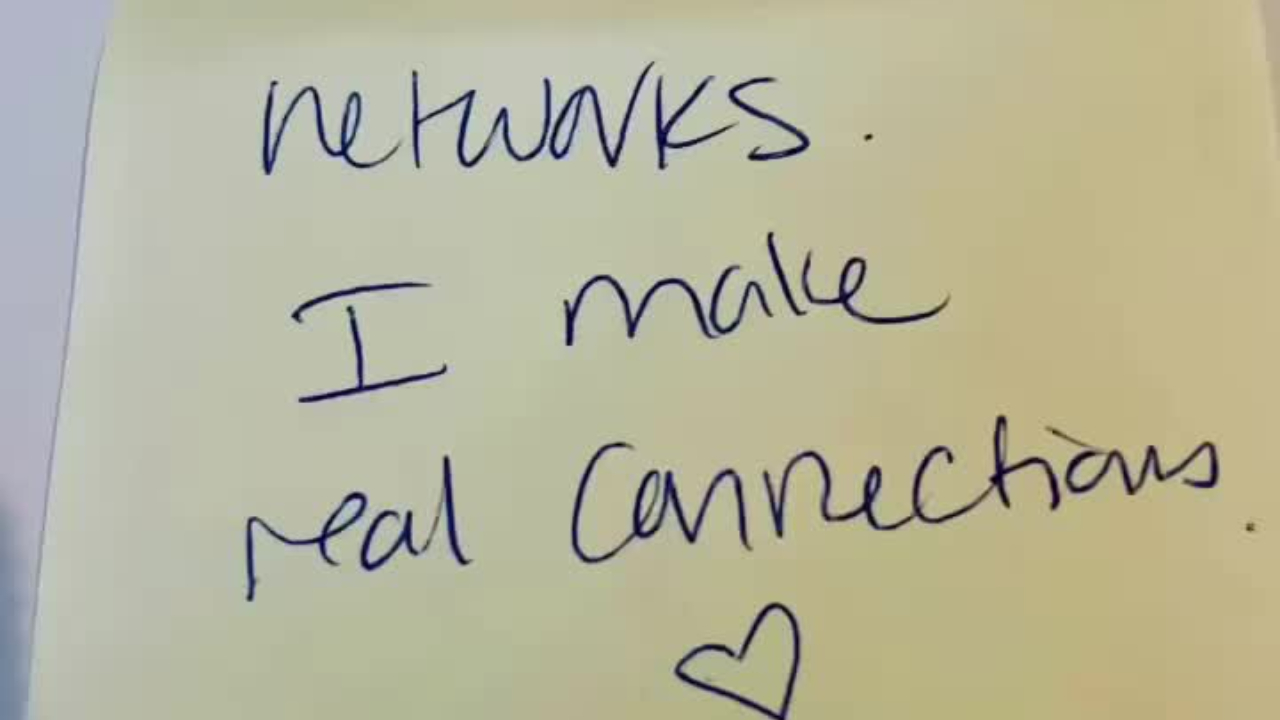 networks.
I make
real connections.